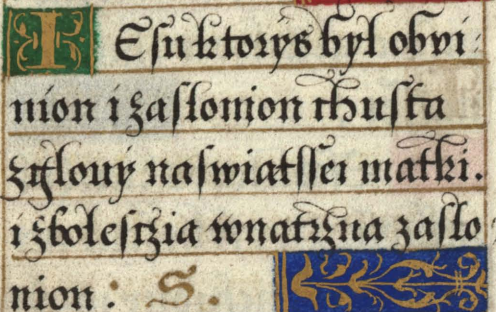 IEsu ktorys byl obvi
nion i zaslonion chusta
zglouy naswiatssei matki.
i zbolesczia wnatrzna zaslo
nion : S.